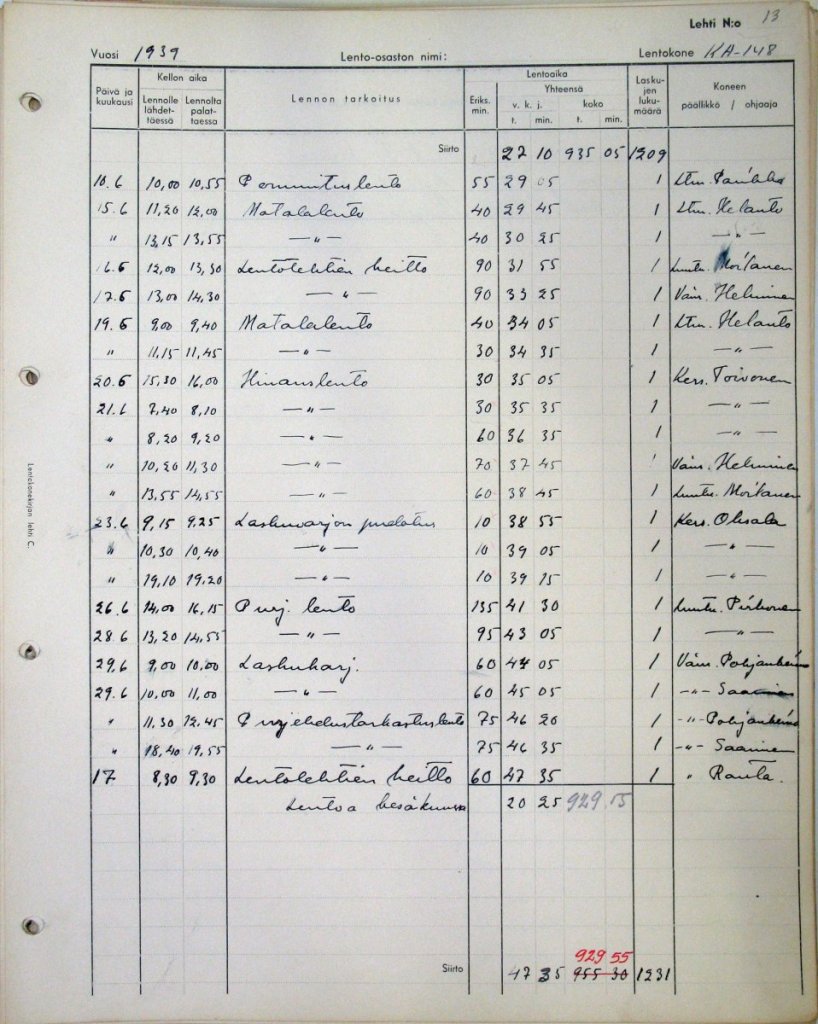 Lehti N:o 13
Vuosi 1939 Lento-osaston nimi: Lentokone KA-148
Päivä ja kuukausi Kellon aika Lennolle lähdettäessä Lennolta palattaessa Lennon tarkoitus Eriks. min. Lentoaika Yhteensä v. k. j. t. min. koko t. min. Laskujen lukumäärä Koneen päällikkö / ohjaaja
Siirto 27 10 935 05 1209
10.6 10,00 10,55 55 29 05 1 Ltn.
15.6 11,20 12,00 Matalalento 40 29 45 1 Ltn. Helanto
" 13,15 13,55 —"— 40 30 25 1 —"—
16.6 12,00 13,30 Lentolehtien heitto 90 31 55 1 Luutn. Moilanen
17.6 13,00 14,30 —"— 90 33 25 1 Vänr. Helminen
19.6 9,00 9,40 Matalalento 40 34 05 1 Ltn. Helanto
" 11,15 11,45 —"— 30 34 35 1 —"—
20.6 15,30 16,00 Hinauslento 30 35 05 1 Kers. Toivonen
21.6 7,40 8,10 —"— 30 35 35 1 —"—
" 8,20 9,20 —"— 60 36 35 1 —"—
" 10,20 11,30 —"— 70 37 45 ' Vänr. Helminen
" 13,55 14,55 —"— 60 38 45 1 Luutn. Moilanen
23.6 9,15 9,25 Laskuvarjon pudotus 10 38 55 1 Kers. Oksala
" 10,30 10,40 —"— 10 39 05 1 —"—
" 19,10 19,20 —"— 10 39 15 1 —"—
26.6 14,00 16,15 Purj. lento 135 41 30 1 Luutn. Pirhonen
28.6 13,20 14,55 —"— 95 43 05 1 —"—
29,6 9,00 10,00 Laskuharj. 60 44 05 1 Vänr. Pohjanheimo
29.6 10,00 11,00 —"— 60 45 05 1 —"— Saarinen
" 11,30 12,45 Purjehdustarkastuslento 75 46 20 1 —"— Pohjanheimo
" 18,40 19,55 —"— 75 46 35 1 —"— Saarinen
17 8,30 9,30 Lentolehtien heitto 60 47 35 1 " Ranta.
Lentoa kesäkuussa 20 25 929.55
929 55
Siirto 47 35 955 30 1231
Lentokonekirjan lehti C.